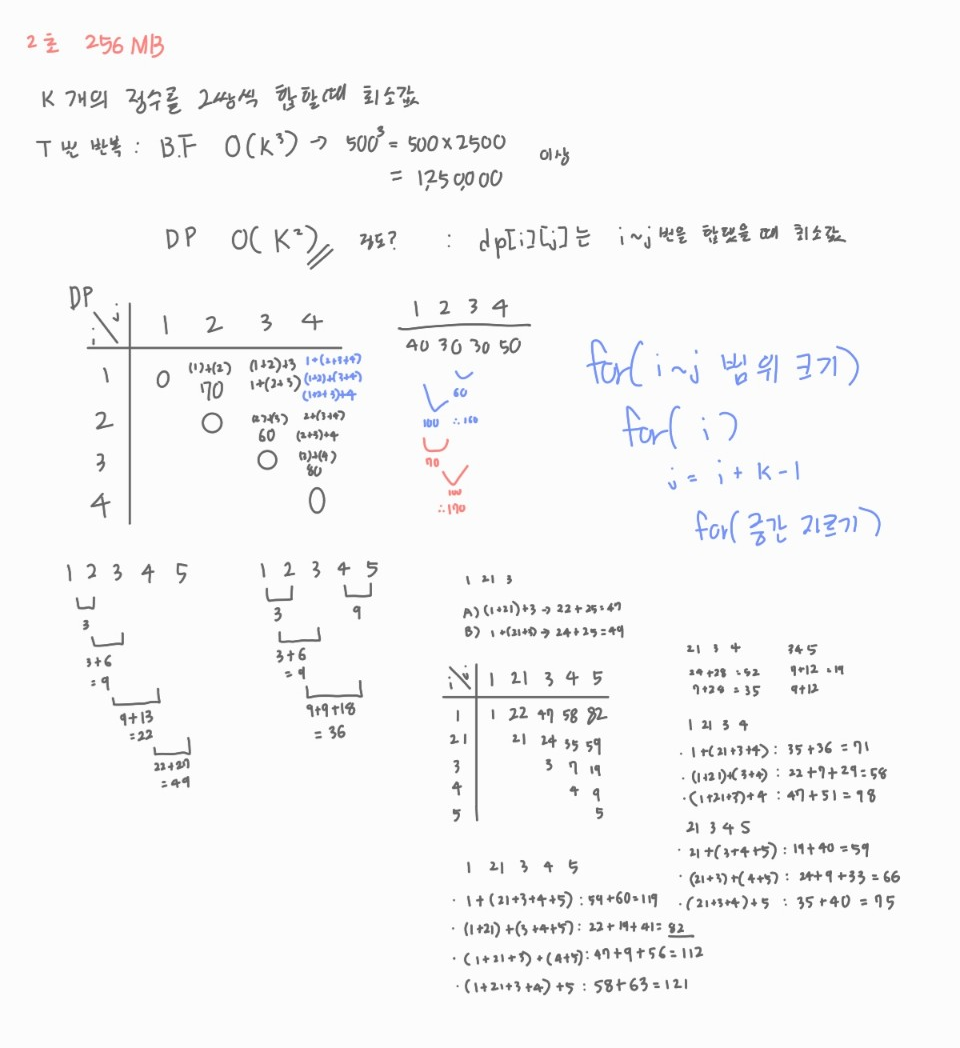 2초 256 MB
K 개의 정수를 2쌍씩 합할때 최소값
T 번 반복 : B.F O(K³) → 500³ = 500 x 2500 이상
= 1,250,000
DP O(K²) 정도? : dp[i][j]는 i~j 번을 합했을때 최소값
DP
i \ j 1 2 3 4
1 0 (1)+(2) 70 (1+2)+3 1+(2+3) 1+(2+3+4) (1+2)+(3+4) (1+2+3)+4
2 0 (2)+(3) 60 2+(3+4) (2+3)+4
3 0 (3)+(4) 80
4 0
1 2 3 4
40 30 30 50
60
100 ∴160
70
100
∴170
for( i~j 범위 크기)
for( i )
j = i + K - 1
for( 중간 자르기)
1 2 3 4 5
3
3+6
= 9
9+13
=22
22+27
=49
1 2 3 4 5
3 9
3+6
= 9
9+9+18
= 36
1 21 3
A) (1+21)+3 → 22+25=47
B) 1+(21+3) → 24+25=49
i \ j 1 21 3 4 5
1 1 22 47 58 82
21 21 24 35 59
3 3 7 19
4 4 9
5 5
21 3 4
24+28 =52
7+28 = 35
3 4 5
9+12
1 21 3 4
· 1+(21+3+4) : 35+36 = 71
· (1+21)+(3+4) : 22+7+29=58
· (1+21+3)+4 : 47+51 = 98
21 3 4 5
· 21+(3+4+5) : 19+40 =59
· (21+3)+(4+5) : 24+9+33 = 66
· (21+3+4)+5 : 35+40 = 75
1 21 3 4 5
· 1+(21+3+4+5) : 59+60=119
· (1+21)+(3+4+5) : 22+19+41= 82
· (1+21+3)+(4+5) : 47+9+56=112
· (1+21+3+4)+5 : 58+63=121